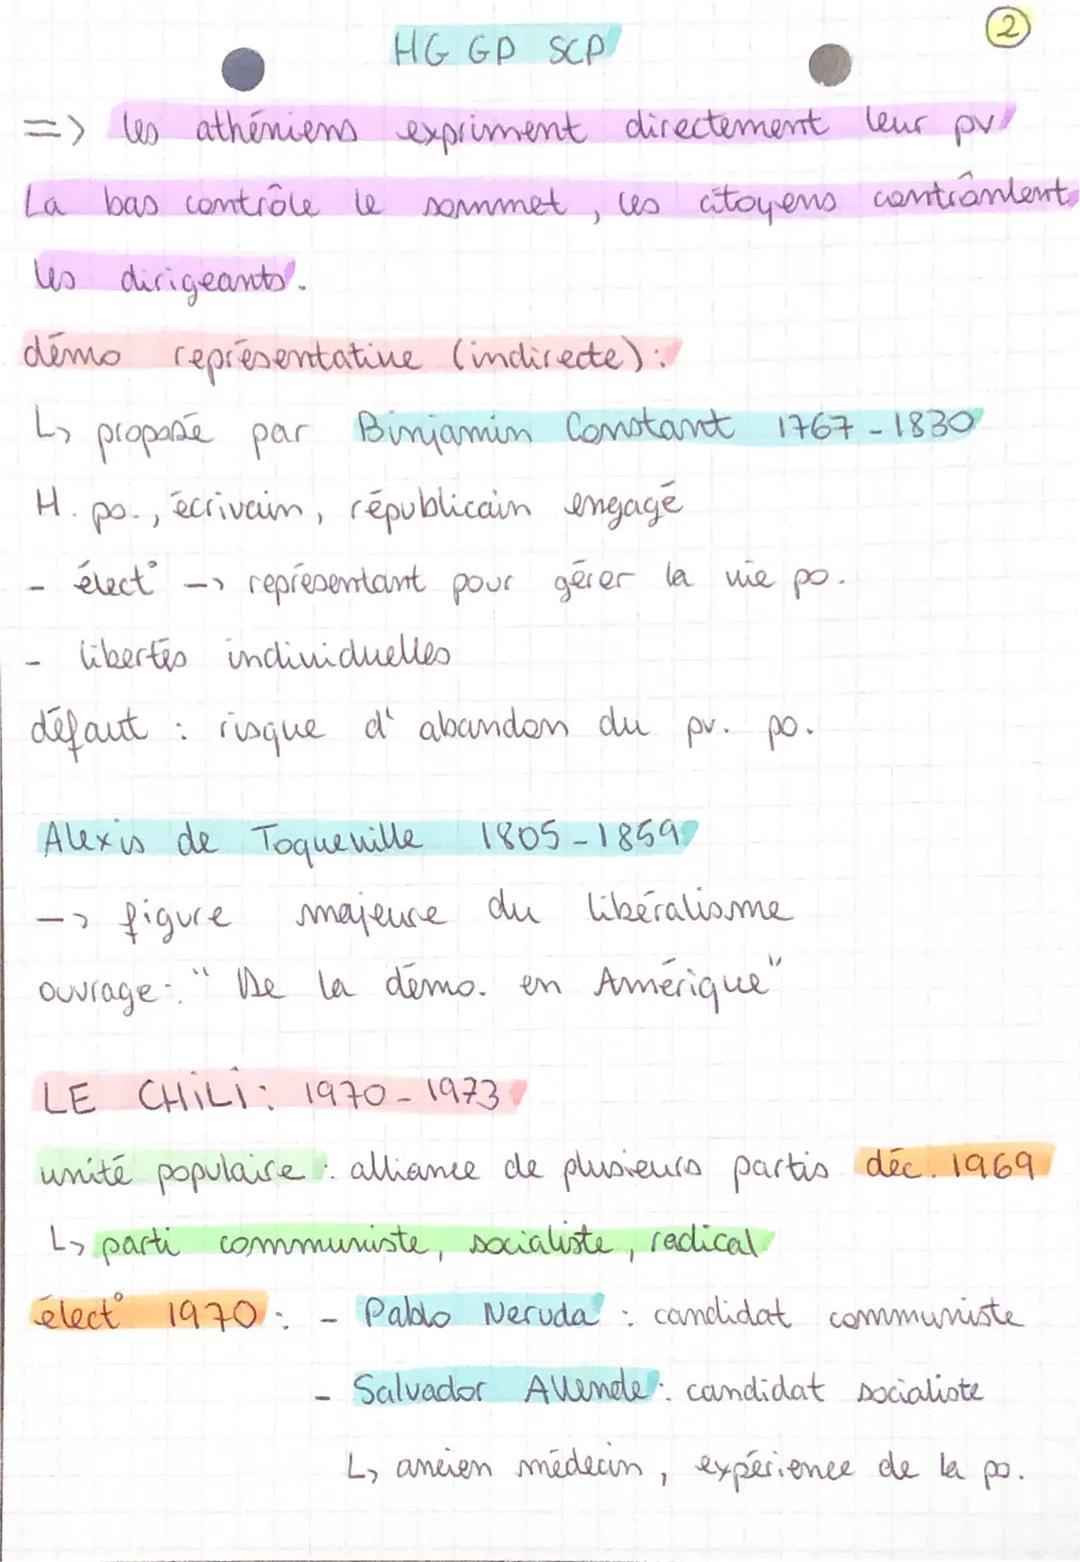 HG GP SCP
2
=> les athéniens expriment directement leur pv
La bas contrôle le sommet, les citoyens contrônlent
les dirigeants.
démo représentative (indirecte) :
↳ proposé par Binjamin Constant 1767 - 1830
H. po., écrivain, républicain engagé
- élect° -> représentant pour gérer la vie po.
- libertés individuelles
défaut : risque d'abandon du pv. po.
Alexis de Toqueville 1805 - 1859
-> figure majeure du libéralisme
ouvrage : "De la démo. en Amérique"
LE CHILI : 1970 - 1973
unité populaire : alliance de plusieurs partis déc. 1969
↳ parti communiste, socialiste, radical
élect° 1970 : - Pablo Neruda : candidat communiste
- Salvador Allende : candidat socialiste
↳ ancien médecin, expérience de la po.